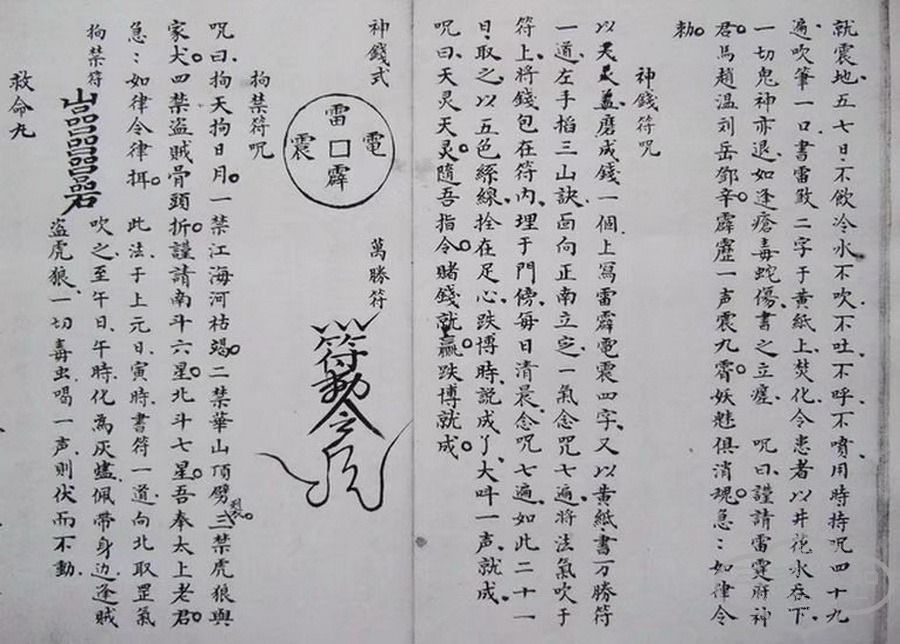 就震地五七日不飲冷水不吹不吐不呼不噴用時持咒四十九
遍吹筆一口書雷敕二字于黃紙上焚化令患者以井花水吞下
一切鬼神亦退如逢瘡毒蛇傷書之立痊 咒曰謹請雷霆府神
君馬趙温刘岳鄧辛霹靂一声震九霄妖魅俱消魂急〻如律令
勅
神錢符咒
以天灵蓋磨成錢一個上寫雷霹電震四字又以黃紙書万勝符
一道左手掐三山訣面向正南立定一氣念咒七遍將法氣吹于
符上將錢包在符內埋于門傍每日清晨念咒七遍如此二十一
日取之以五色絲線拴在足心跌博時説成了大呌一声就成
咒曰天灵天灵隨吾指令賭錢就贏跌博就成
神錢式
雷電霹震
萬勝符
符勅令
拘禁符咒
咒曰拘天拘日月一禁江海河枯竭二禁華山頂劈裂三禁虎狼與
家犬四禁盜賊骨頭折謹請南斗六星北斗七星吾奉太上老君
急〻如律令律揖
此法于上元日寅時書符一道向北取罡氣
拘禁符
吹之至午日午時化為灰爐佩帶身边逢賊
盜虎狼一切毒虫喝一声則伏而不動
救命九